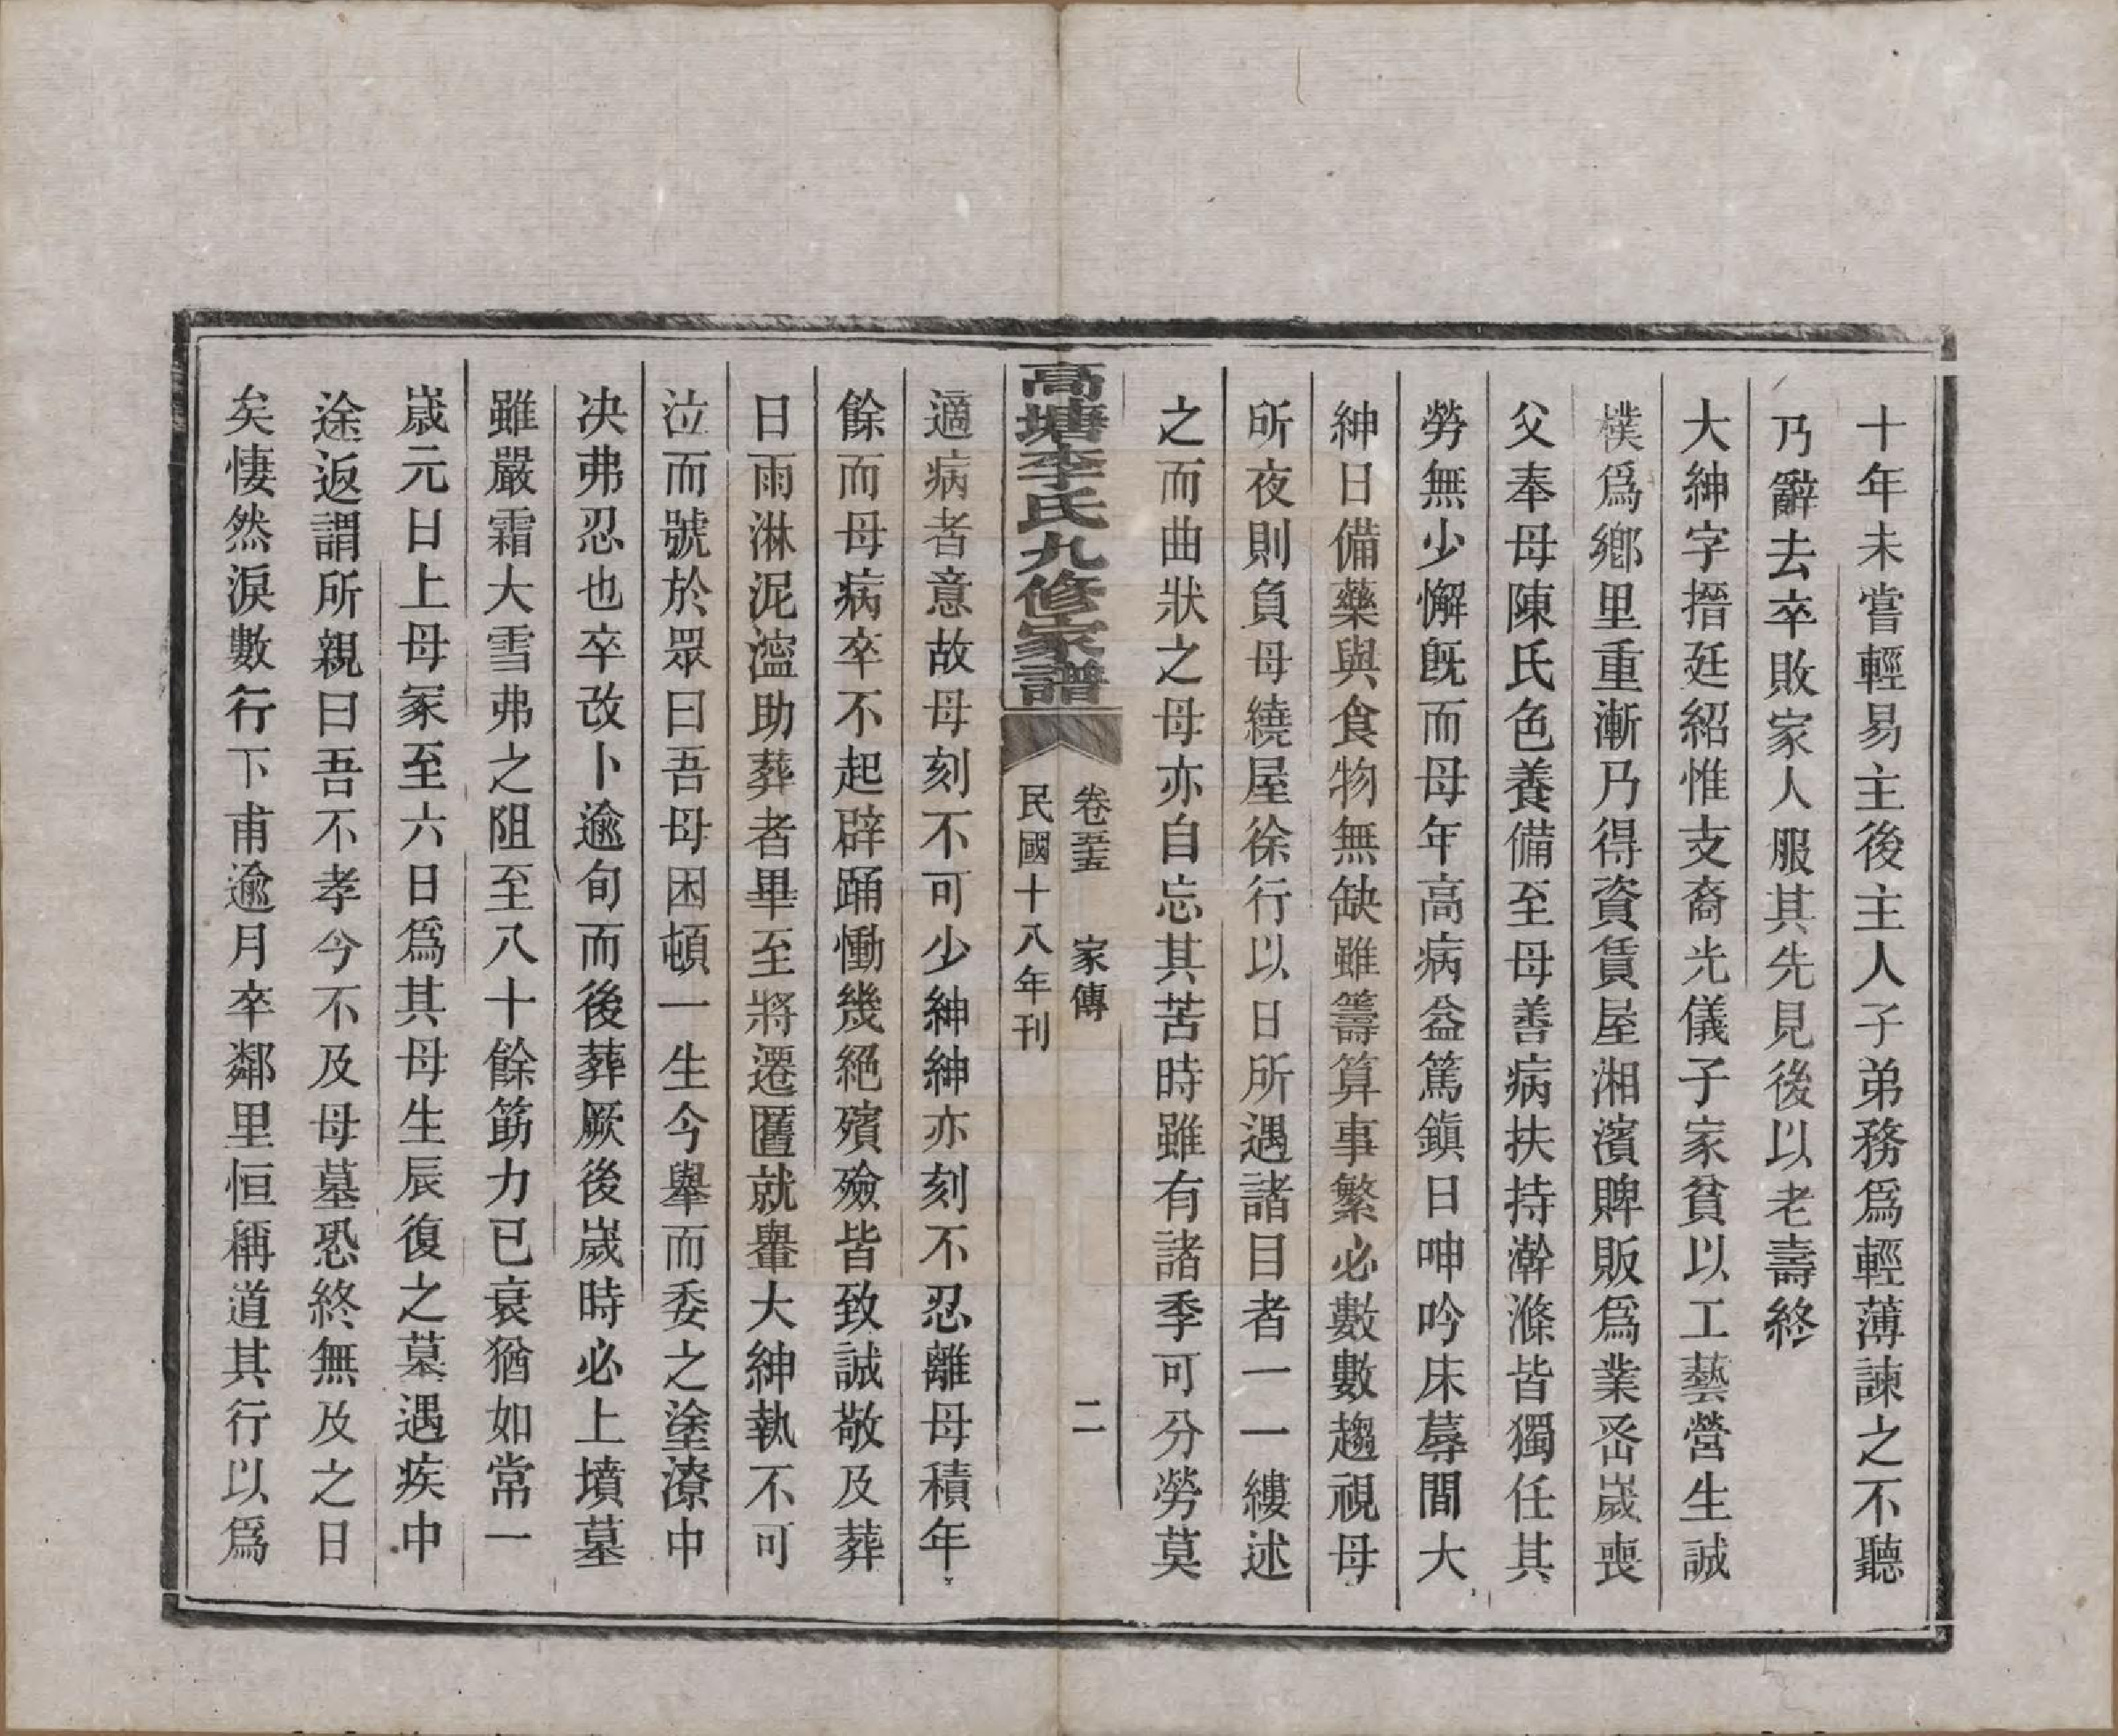 十年未嘗輕易主後主人子弟務爲輕薄諫之不聽
乃辭去卒敗家人服其先見後以老壽終
大紳字搢廷紹惟支裔光儀子家貧以工藝營生誠
樸爲鄉里重漸乃得資賃屋湘濱睥販爲業喬嵗喪
父奉母陳氏色養備至母善病扶持澣滌皆獨任其
勞無少懈旣而母年高病益篤鎭日呻吟床蓐間大
紳日備藥與食物無缺雖籌算事繁必數數趨視母
所夜則負母繞屋徐行以日所遇諸目者一一縷述
之而曲狀之母亦自忘其苦時雖有諸季可分勞莫
高塘李氏九修家譜
卷五 家傳 二
民國十八年刊
適病者意故母刻不可少紳紳亦刻不忍離母積年
餘而母病卒不起辟踊慟幾絕殯殮皆致誠敬及葬
日雨淋泥濫助葬者畢至將遷匶就轝大紳執不可
泣而號於眾曰吾母困頓一生今舉而委之塗潦中
决弗忍也卒改卜逾旬而後葬厥後嵗時必上墳墓
雖嚴霜大雪弗之阻至八十餘筋力已衰猶如常一
嵗元日上母冢至六日爲其母生辰復之墓遇疾中
途返謂所親曰吾不孝今不及母墓恐終無及之日
矣悽然淚數行下甫逾月卒鄰里恒稱道其行以爲